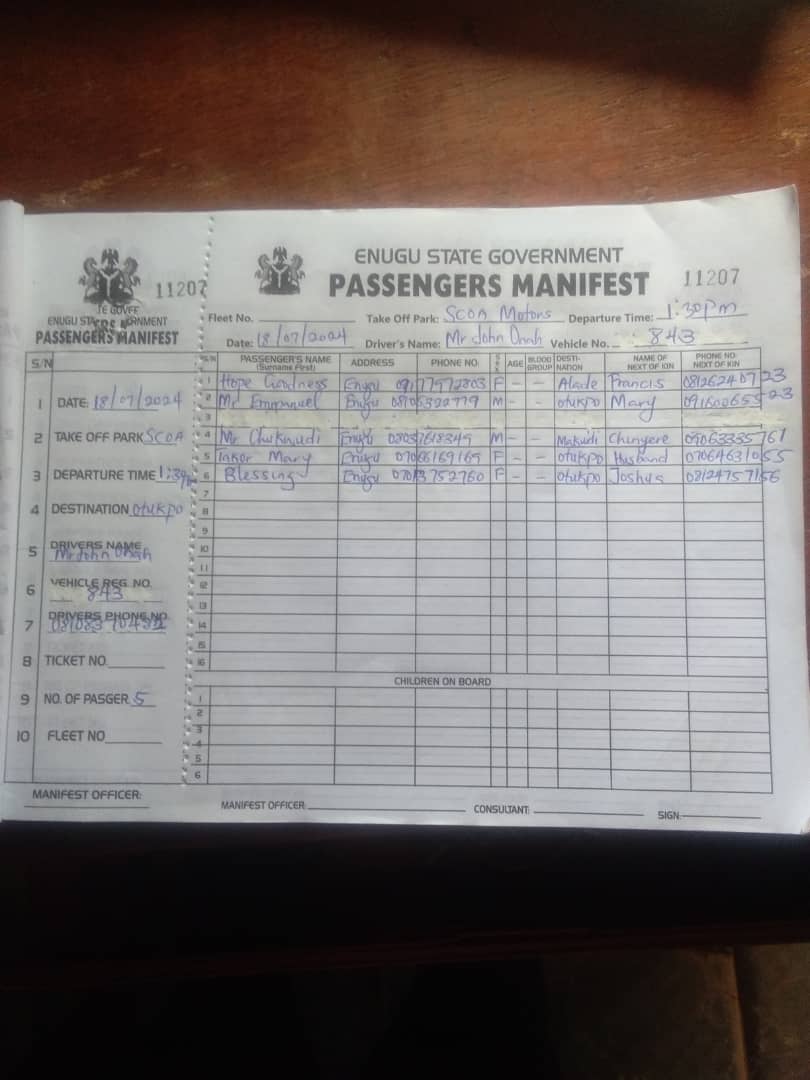 11207
ENUGU STATE GOVERNMENT
PASSENGERS MANIFEST
S/N
1 DATE: 18/07/2024
2 TAKE OFF PARK SCOA
3 DEPARTURE TIME 1:30pm
4 DESTINATION Otukpo
5 DRIVERS NAME Mr John Onah
6 VEHICLE REG. NO. 843
7 DRIVERS PHONE NO.
8 TICKET NO.
9 NO. OF PASGER 5
10 FLEET NO
MANIFEST OFFICER:
ENUGU STATE GOVERNMENT
PASSENGERS MANIFEST 11207
Fleet No. Take Off Park: SCOA Motors Departure Time: 1:30pm
Date: 18/07/2024 Driver's Name: Mr John Onah Vehicle No. 843
S/N PASSENGER'S NAME (Surname First) ADDRESS PHONE NO. SEX AGE BLOOD GROUP DESTI-NATION NAME OF NEXT OF KIN PHONE NO. NEXT OF KIN
1 Hope Goodness Enugu 09177972803 F - - Alade Francis 08126240723
2 Mr Emmanuel Enugu 08106322779 M - - Otukpo Mary 09160065523
3
4 Mr Chukwudi Enugu 08037618349 M - - Makudi Chinyere 09063335761
5 Inkor Mary Enugu 07066169169 F - - Otukpo Husband 07064631055
6 Blessing Enugu 07013752760 F - - Otukpo Joshua 08124757156
7
8
9
10
11
12
13
14
15
16
CHILDREN ON BOARD
1
2
3
4
5
6
MANIFEST OFFICER: CONSULTANT: SIGN: